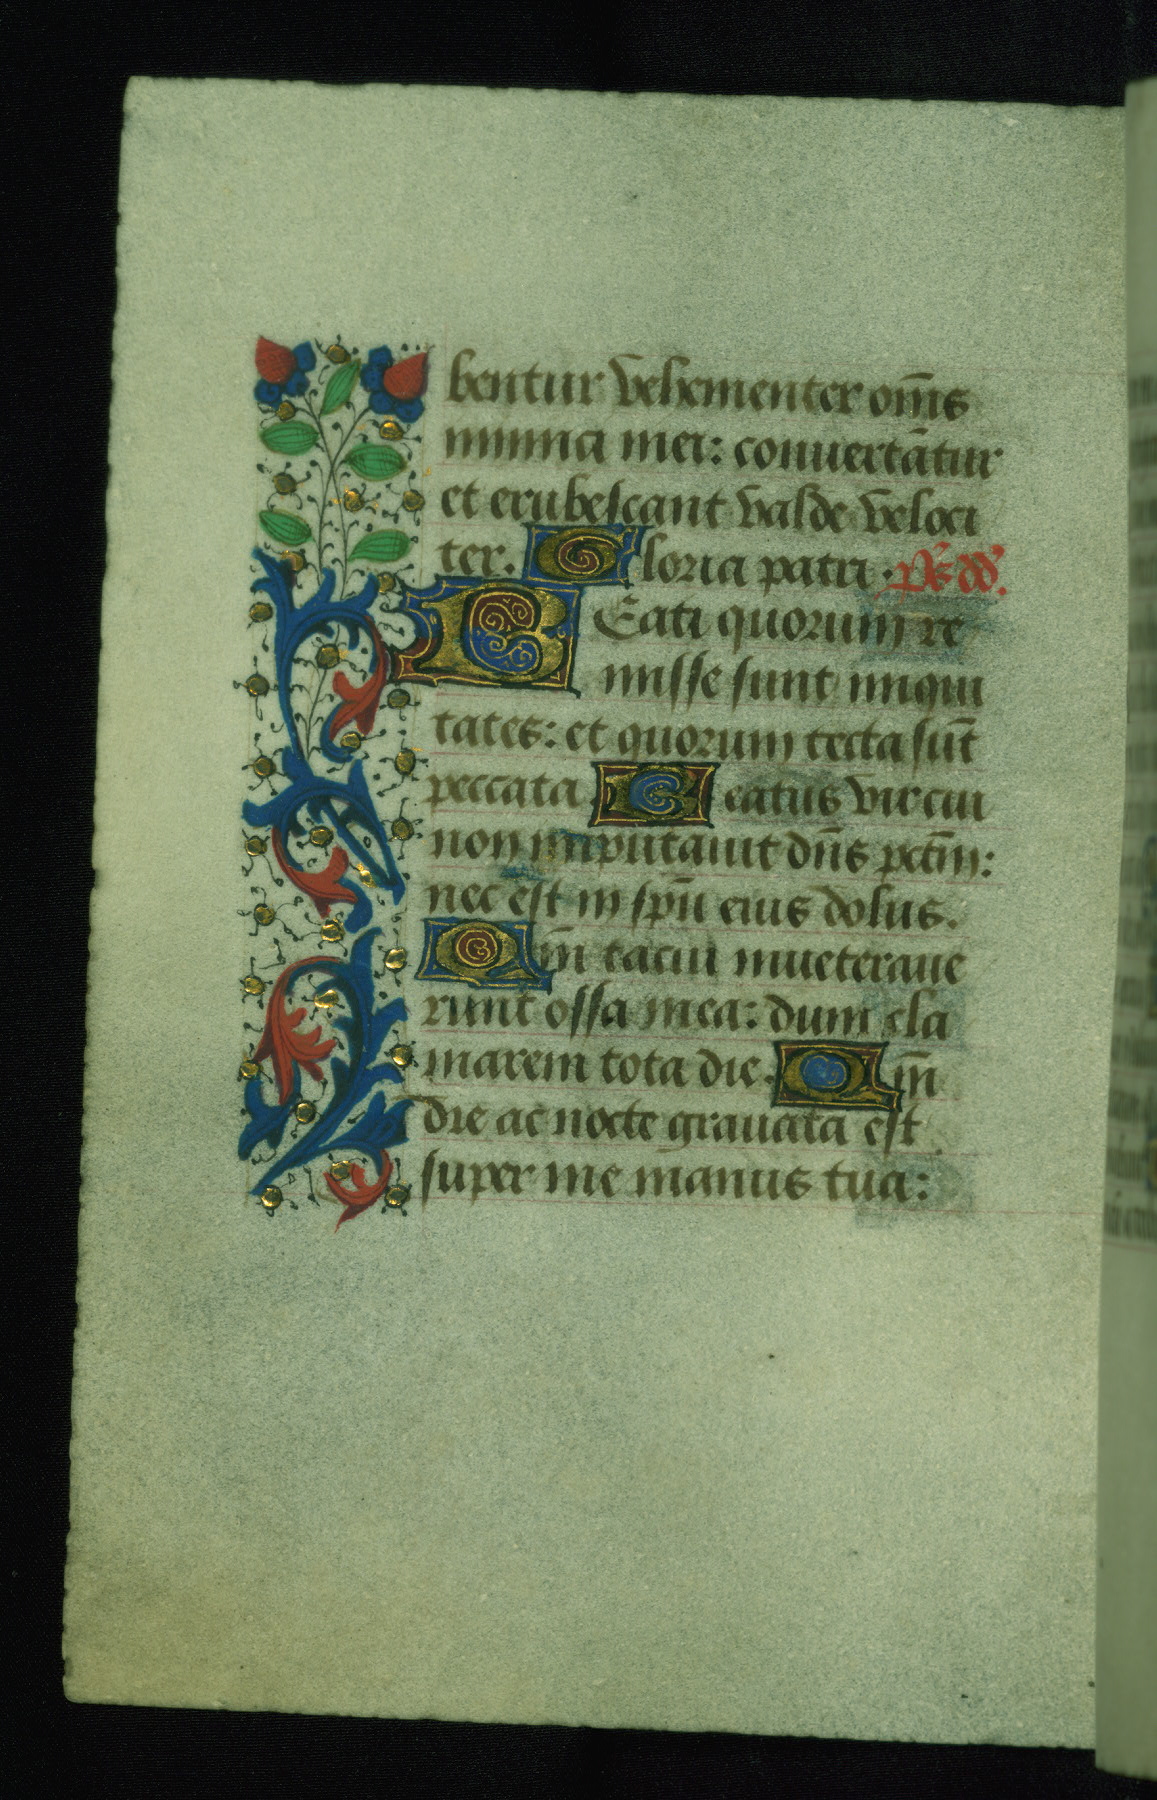 bentur vehementer om̄s
inimici mei: conuertātur
et erubescant valde veloci
ter. Gloria patri. p̄s dd̄.
BEati quorum re
misse sunt iniqui
tates: et quorum tecta sūt
peccata Beatus vir cui
non imputauit dn̄s pctm̄:
nec est in spū eius dolus.
Qm̄ tacui inueteraue
runt ossa mea: dum cla
marem tota die. Qm̄
die ac nocte grauata est
super me manus tua: